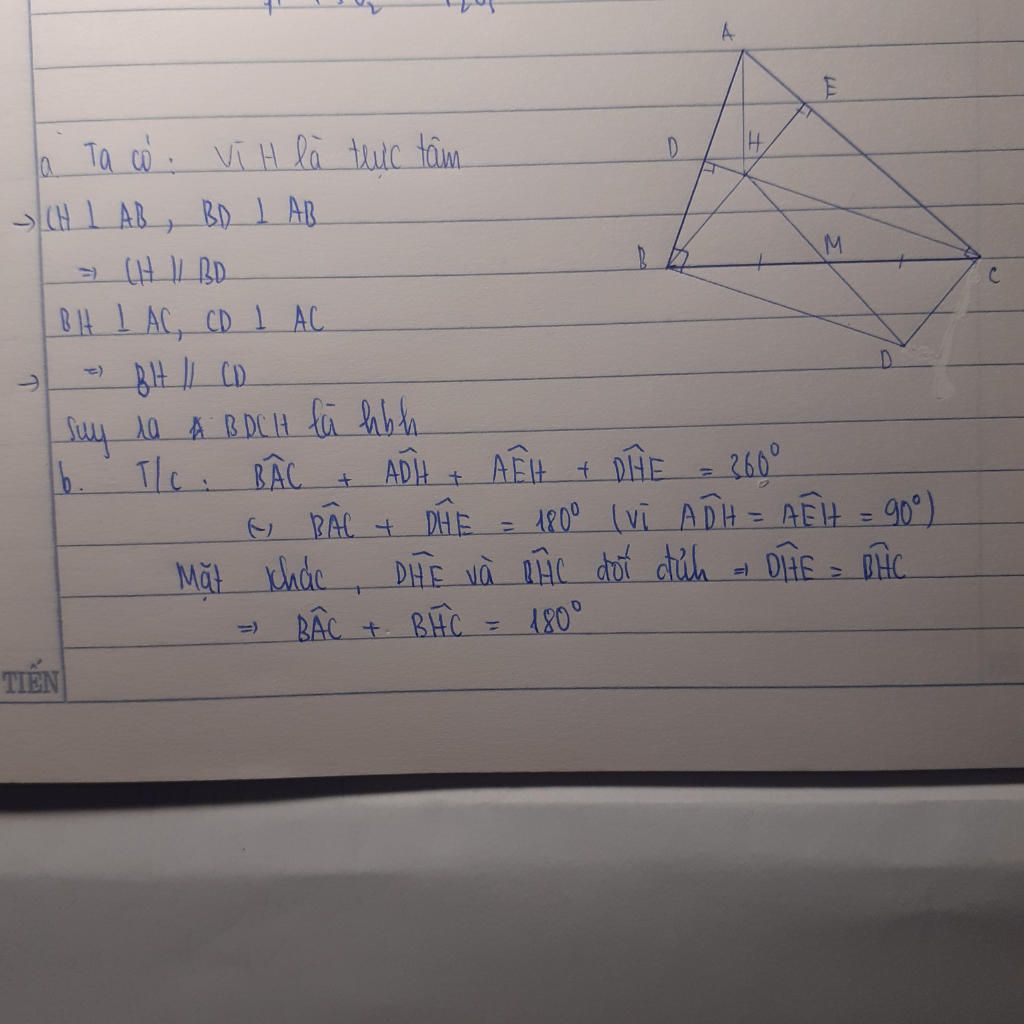 A
E
D
H
B
M
C
D
a Ta có: Vì H là trực tâm
→ CH ⊥ AB, BD ⊥ AB
=> CH // BD
BH ⊥ AC, CD ⊥ AC
→ => BH // CD
suy ra BDCH là hbh
b. T/c: BÂC + AD̂H + AÊH + DĤE = 360°
(-) BÂC + DĤE = 180° (vì AD̂H = AÊH = 90°)
Mặt khác, DĤE và BĤC đối đỉnh => DĤE = BĤC
=> BÂC + BĤC = 180°
TIẾN